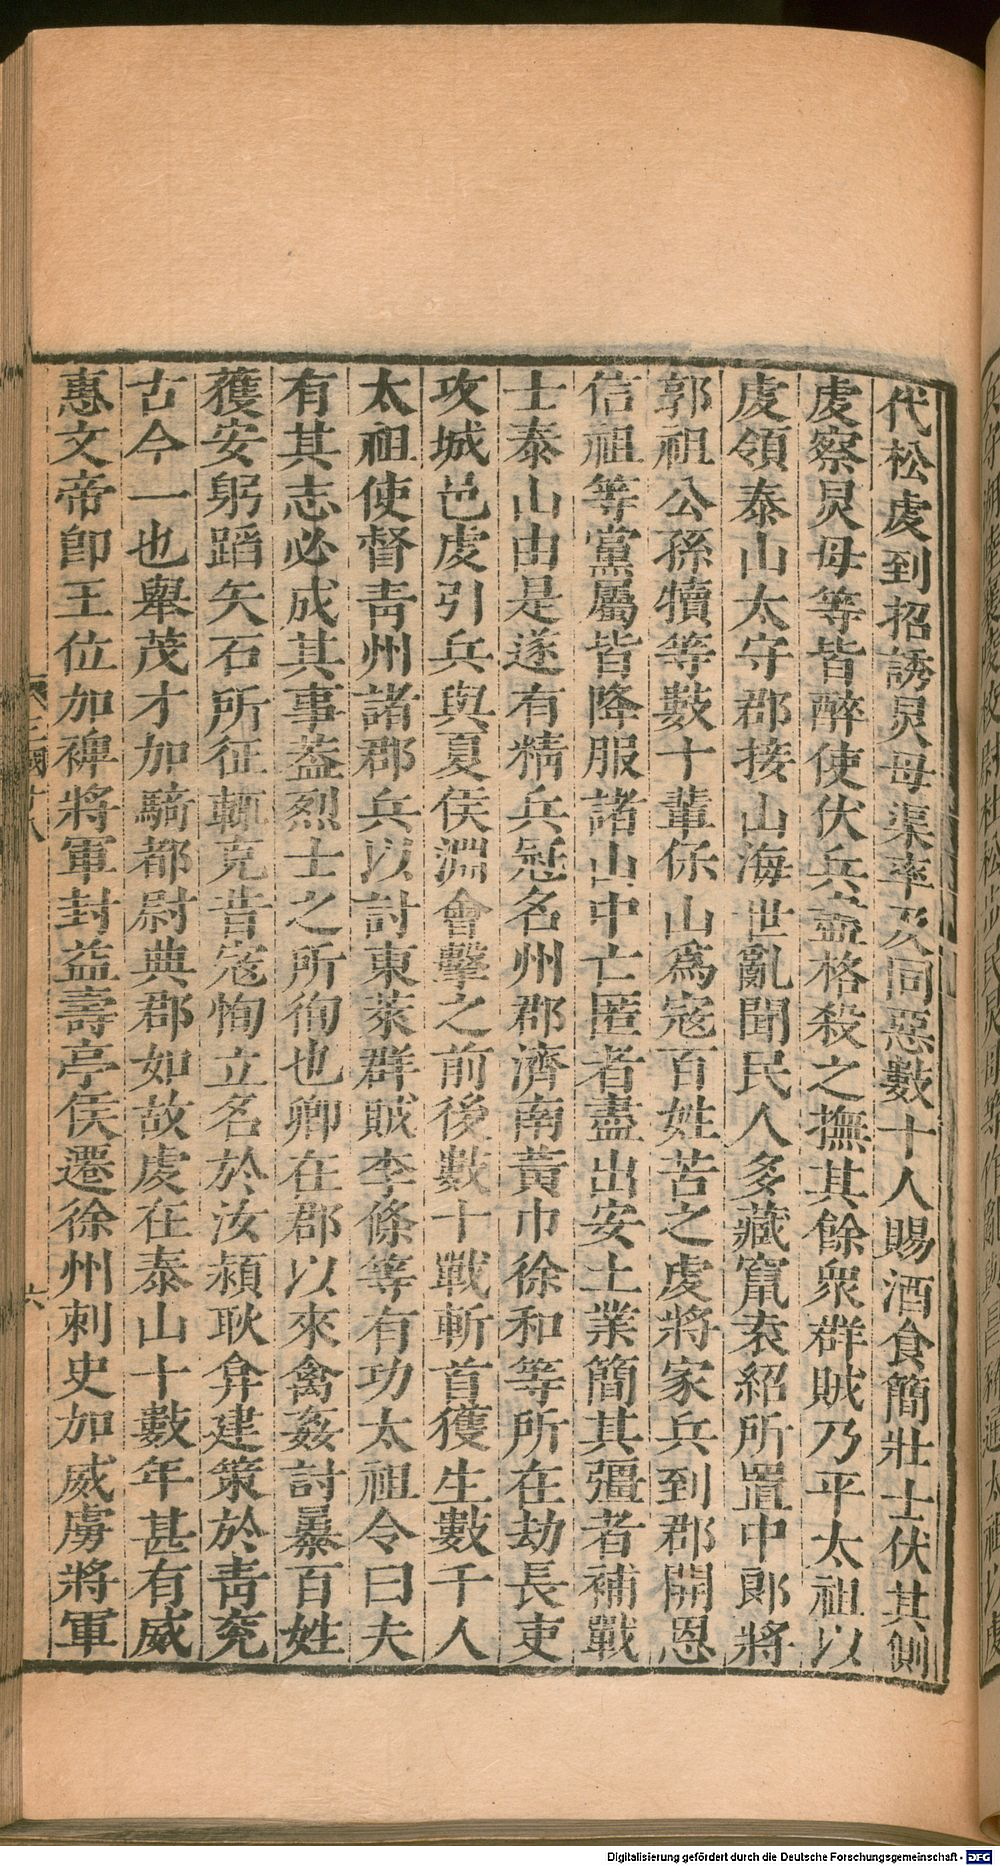 代松虔到招誘炅母渠率及同惡數十人賜酒食簡壯士伏其側
虔察炅母等皆醉使伏兵盡格殺之撫其餘衆群賊乃平太祖以
虔領泰山太守郡接山海世亂聞民人多藏竄袁紹所置中郎將
郭祖公孫犢等數十輩保山爲寇百姓苦之虔將家兵到郡開恩
信祖等黨屬皆降服諸山中亡匿者盡出安土業簡其彊者補戰
士泰山由是遂有精兵冠名州郡濟南黃巾徐和等所在劫長吏
攻城邑虔引兵與夏侯淵會擊之前後數十戰斬首獲生數千人
太祖使督靑州諸郡兵以討東萊群賊李條等有功太祖令曰夫
有其志必成其事蓋烈士之所徇也卿在郡以來禽姦討暴百姓
獲安躬蹈矢石所征輒克昔寇恂立名於汝潁耿弇建策於靑兖
古今一也舉茂才加騎都尉典郡如故虔在泰山十數年甚有威
惠文帝卽王位加裨將軍封益壽亭侯遷徐州刺史加威虜將軍
六
Digitalisierung gefördert durch die Deutsche Forschungsgemeinschaft - DFG